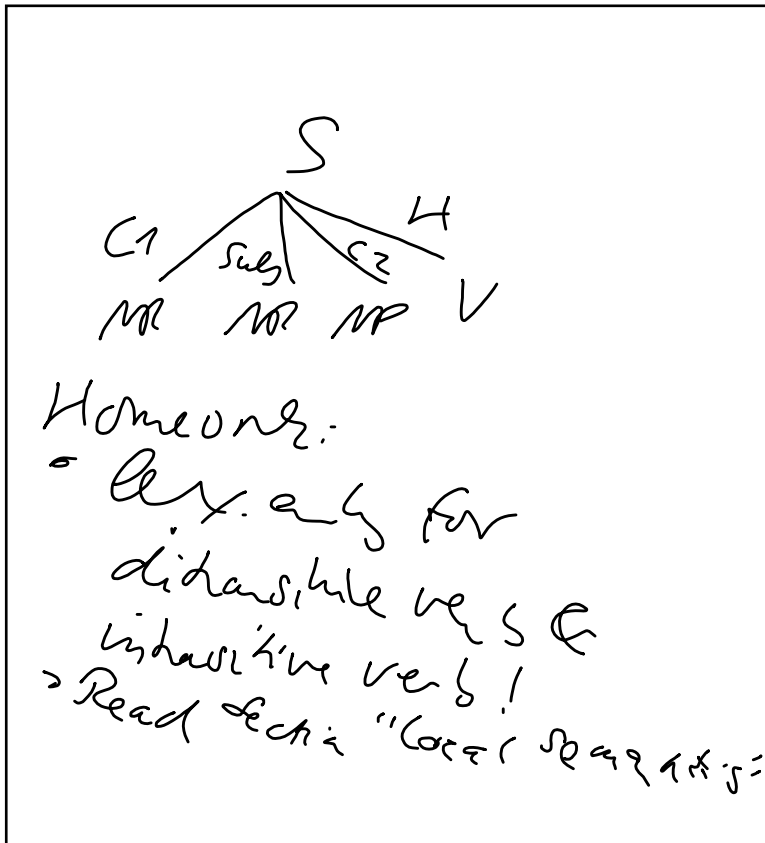 S
C1 Subj C2 H
NP NP NP V
Homework:
- lex. entry for
ditransitive verb &
intransitive verb!
> Read section "Local Semantics"